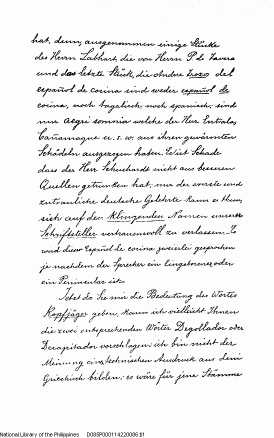 hat, denn, ausgenommen einige Stücke
des Herrn Liebhart, die von Herrn P. de Tavera
und das letzte Stück, die andre trozo del
español de cocina sind weder español de
cocina, noch tagalisch noch spanisch; sind
nur aegri somnia welche der Herr Entrala,
Cañamaque u. s. w. aus ihren gewärmten
Schädeln ausgezogen haben. Wie Schade
dass der Herr Schuchardt nicht aus besseren
Quellen getrunken hat, nur der ernste und
zutrauliche deutsche Gelehrte kann es thun,
sich auf den klingenden Namen
Schriftsteller vertrauensvoll zu verlassen. Es
wird dieser Español de cocina gesprochen
je nachdem der Sprecher ein Eingeborene oder
ein Peninsular ist.
Jetzt da Sie mir die Bedeutung des Wortes
Kopfjäger geben, kann ich vielleicht Ihnen
die zwei entsprechenden Wörter Degollador oder
Decapitador vorschlagen: ich bin nicht der
Meinung einen technischen Ausdruck aus dem
Griechisch bilden; es wäre für jene Stämme
National Library of the Philippines D005P000114220006